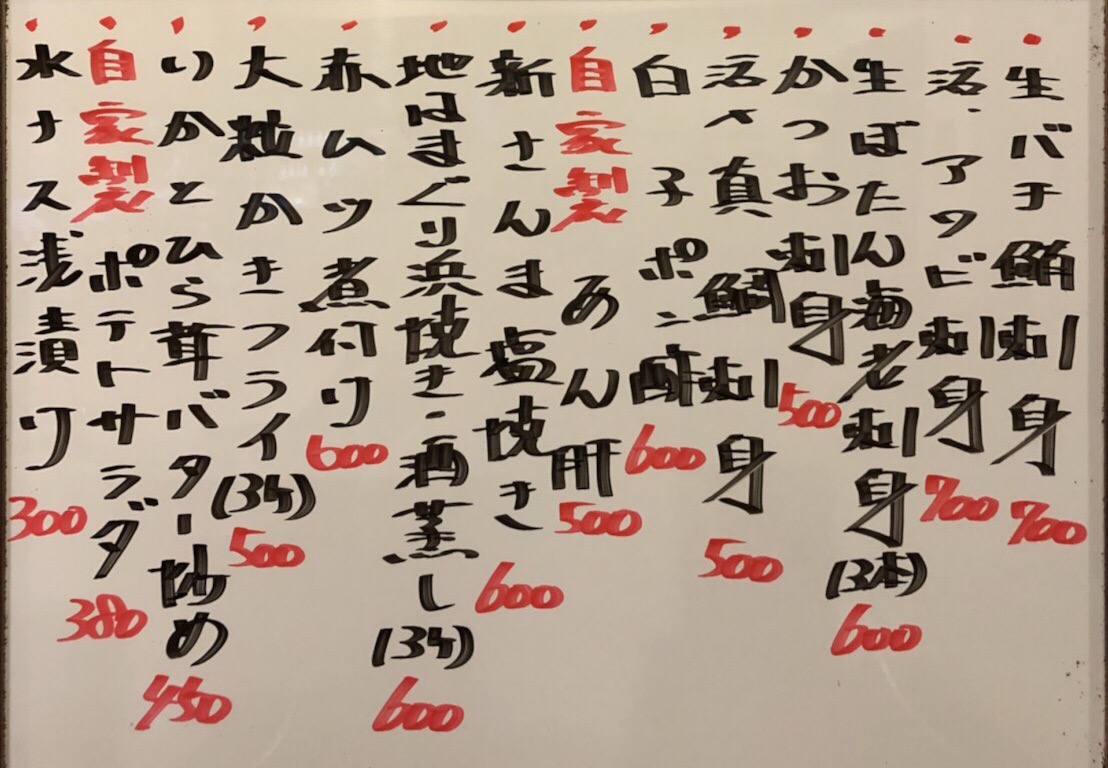 生バチ鮪刺身 700
活、アワビ刺身 700
生ぼたん海老刺身(3本) 600
かつお刺身 500
活〆真鯛刺身 500
白子ポン酢 600
自家製 あん肝 500
新さんま塩焼き 600
地はまぐり浜焼き・酒蒸し(3ケ) 600
赤ヒッ煮付り 600
大粒かきフライ(3ケ) 500
いかとひら茸バター炒め 450
自家製 ポテトサラダ 380
水ナス浅漬り 300